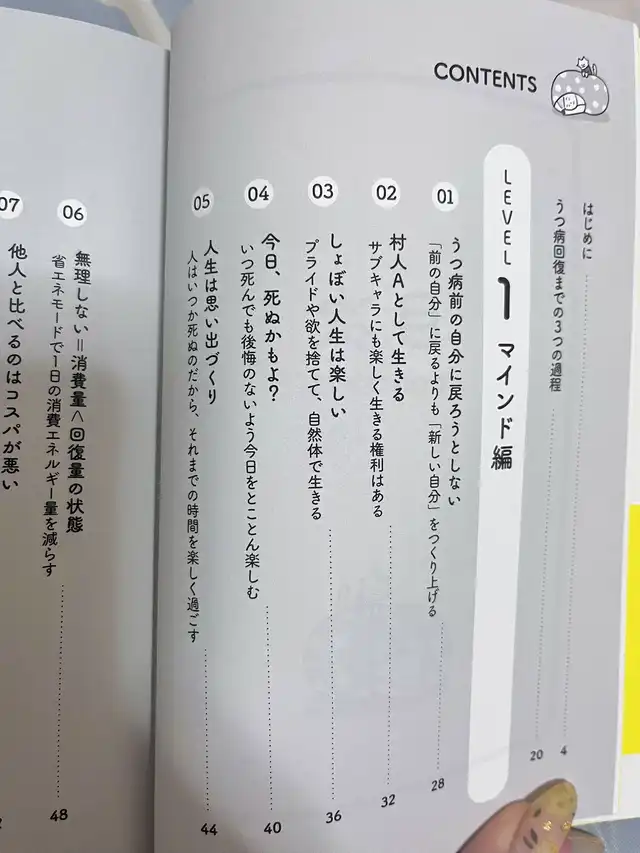 CONTENTS
はじめに
4
うつ病回復までの3つの過程
20
LEVEL 1 マインド編
01
うつ病前の自分に戻ろうとしない
「前の自分」に戻るよりも「新しい自分」をつくり上げる
28
02
村人Aとして生きる
サブキャラにも楽しく生きる権利はある
32
03
しょぼい人生は楽しい
プライドや欲を捨てて、自然体で生きる
36
04
今日、死ぬかもよ?
いつ死んでも後悔のないよう今日をとことん楽しむ
40
05
人生は思い出づくり
人はいつか死ぬのだから、それまでの時間を楽しく過ごす
44
06
無理しない=消費量<回復量の状態
省エネモードで1日の消費エネルギー量を減らす
48
07
他人と比べるのはコスパが悪い